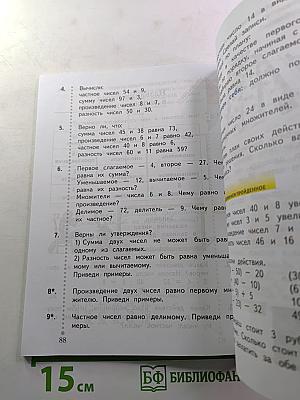 4. Вычисли:
частное чисел 54 и 9,
сумму чисел 97 и 3,
произведение чисел 8 и 7,
разность чисел 50 и 30.
5. Верно ли, что:
сумма чисел 45 и 38 равна 73,
произведение чисел 6 и 7 равно 42,
частное чисел 40 и 8 равно 6,
разность чисел 60 и 11 равна 59?
6. Первое слагаемое — 4, второе — 27. Чему
равна их сумма?
Уменьшаемое — 12, вычитаемое — 5. Чему
равна их разность?
Множители — числа 6 и 8. Чему равно их
произведение?
Делимое — 72, делитель — 9. Чему равно
их частное?
7. Верны ли утверждения?
1) Сумма двух чисел не может быть равна
одному из слагаемых.
2) Разность чисел может быть равна уменьшае-
мому или вычитаемому.
Приведи примеры.
8*. Произведение двух чисел равно первому мно-
жителю. Приведи примеры.
9*. Частное чисел равно делимому. Приведи при-
меры.
88
число 14 в виде
записи.
плану:
качестве первого
порядку, начиная с
второе слагаемое
должно по
число 24 в виде
множителей.
для своих действий
Сколько
чисел 40 и 8
чисел 7 и
чисел 46 и 16
действия.
стоит 3 руб
Сколько стоит
за обе
15 см
БФ БИБЛИОФАН